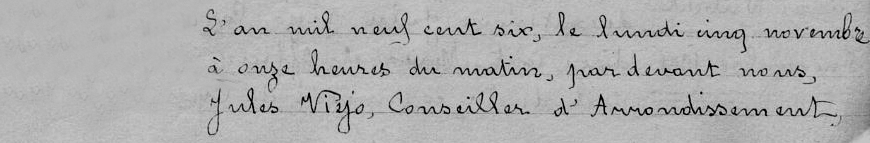 L'an mil neuf cent six, le lundi cinq novembre
à onze heures du matin, par devant nous,
Jules Viéjo, Conseiller d'Arrondissement,